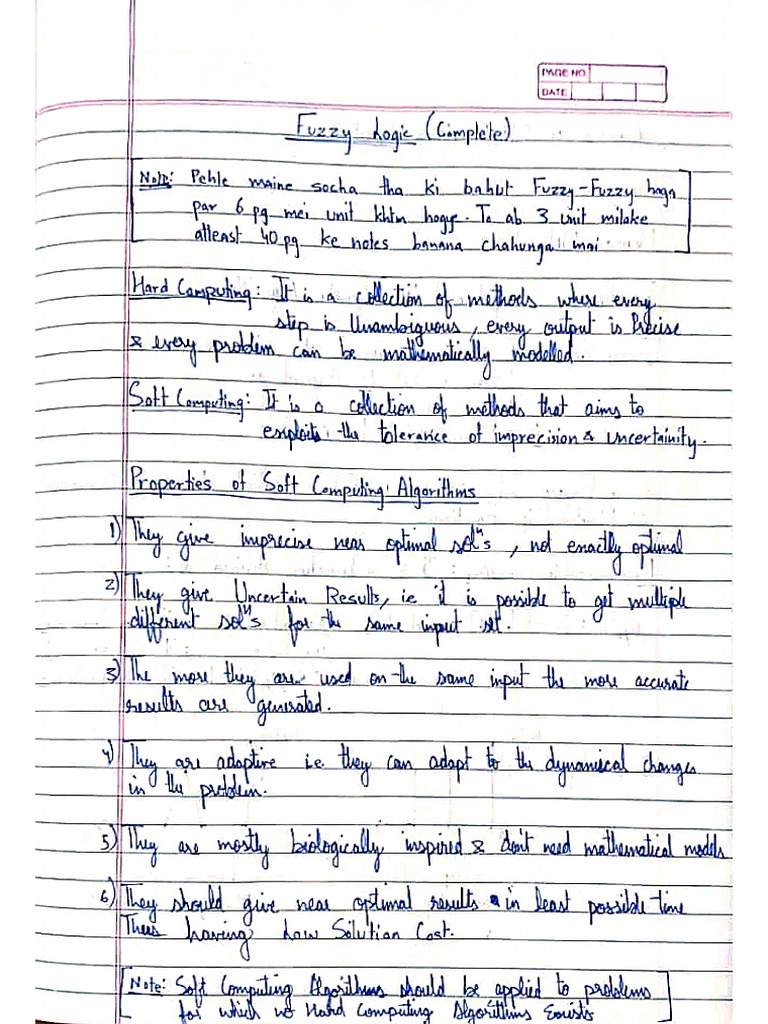 PAGE NO.
DATE
Fuzzy Logic (Complete)
Note: Pehle maine socha tha ki bahut Fuzzy-Fuzzy hoga
par 6 pg mei unit khtm hogye. To ab 3 unit milake
atleast 40 pg ke notes banana chahunga mai.
Hard Computing: It is a collection of methods where every
step is Unambiguous, every output is Precise
& every problem can be mathematically modelled.
Soft Computing: It is a collection of methods that aims to
exploits the tolerance of imprecision & uncertainity.
Properties of Soft Computing Algorithms
1) They give imprecise near optimal solⁿs, not enactly optimal
2) They give Uncertain Results, ie it is possible to get multiple
different solⁿs for the same input set.
3) The more they are used on the same input the more accurate
results are generated.
4) They are adaptive i.e. they can adapt to the dynamical changes
in the problem.
5) They are mostly biologically inspired & don't need mathematical models
6) They should give near optimal results in least possible time
Thus having Low Solution Cost.
Note: Soft Computing Algorithms should be applied to problems
for which no Hard Computing Algorithms Exists